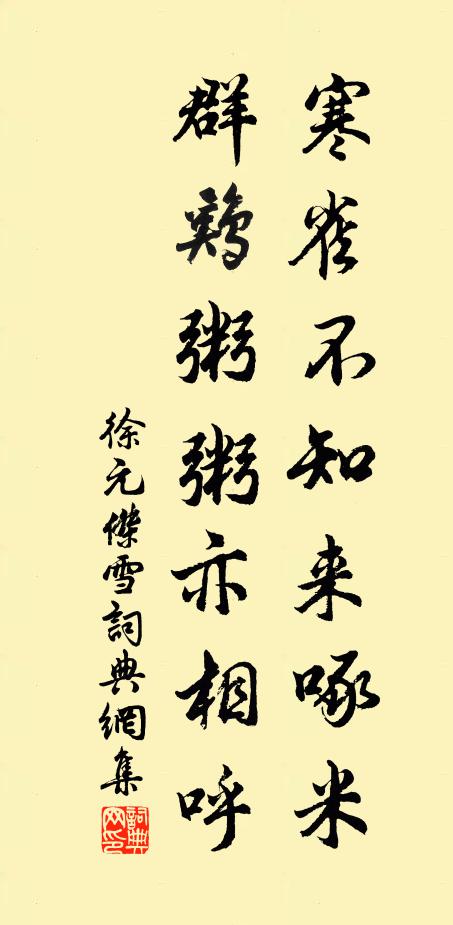 寒雀不知来啄米
群鷄粥粥亦相呼
徐元傑雪詞典網集
詞典网印